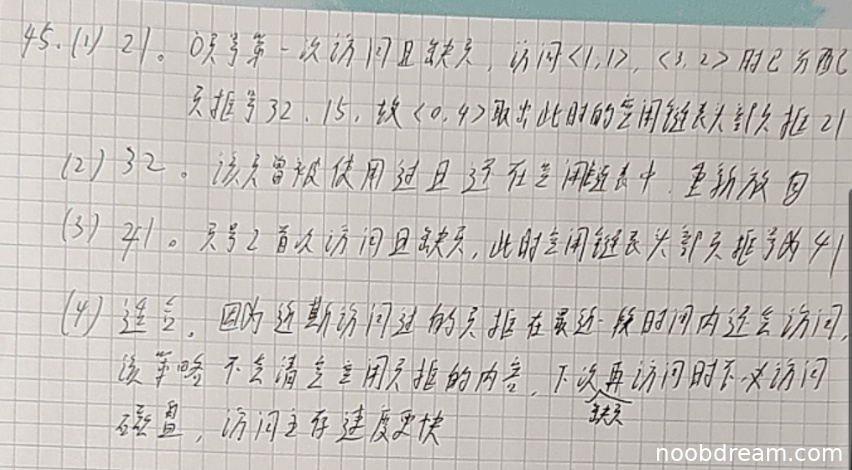 45.(1) 21。0页号第一次访问且缺页,访问<1,1>,<3,2>时已分配
页框号32、15,故<0,4>取出此时的空闲链表头部页框21
(2) 32。该页曾被使用过且还在空闲链表中,重新放回
(3) 41。页号2首次访问且缺页,此时空闲链表头部页框号为41
(4) 适合,因为近期访问过的页框在最近一段时间内还会访问,
该策略不会清空空闲页框的内容,下次再访问时不必访问
缺页
磁盘,访问主存速度更快
noobdream.com